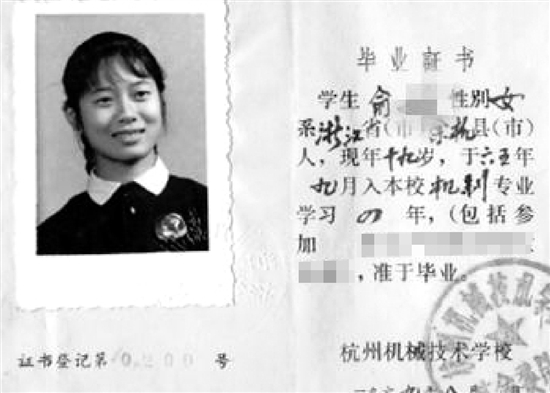 毕业证书
学生 俞 性别女
系浙江省(市)余杭县(市)
人，现年十九岁，于六五年
九月入本校机制专业
学习 四 年，(包括参
加
，准于毕业。
杭州机械技术学校
证书登记第0200号
杭州机械技术学